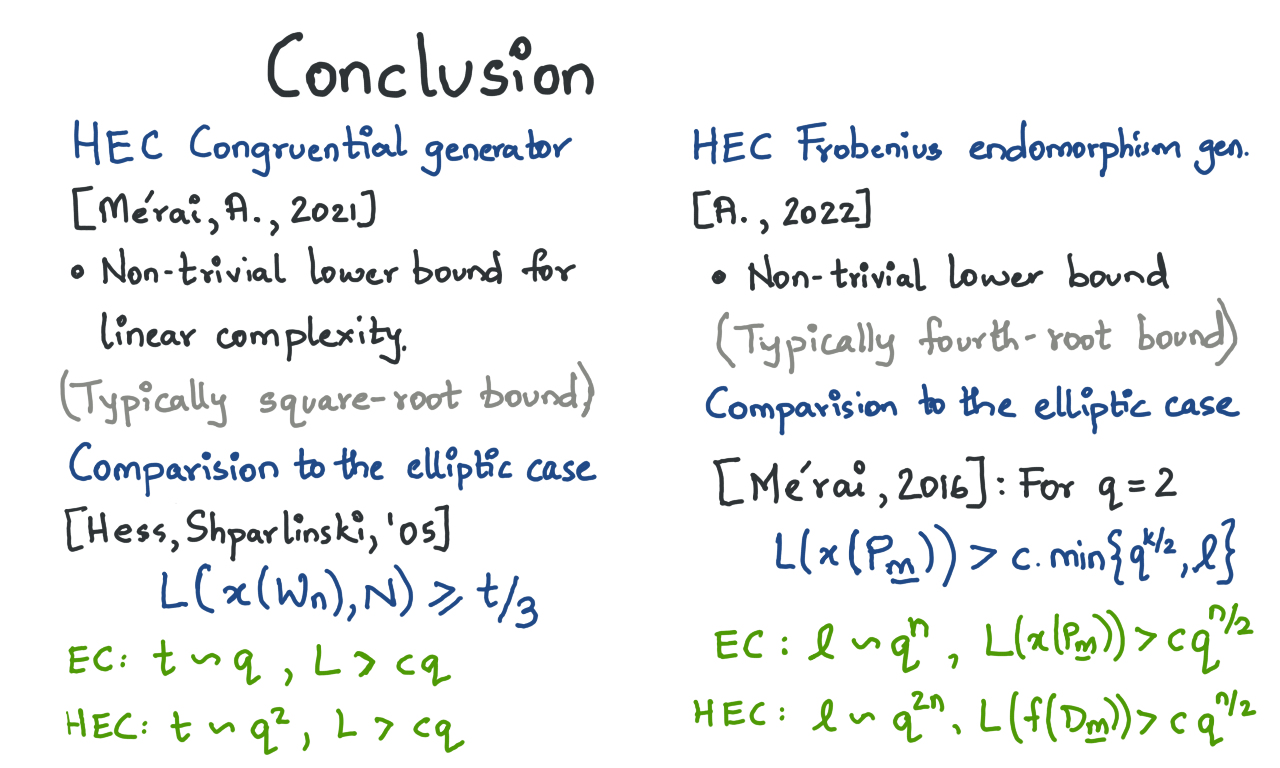 Conclusion
HEC Congruential generator
[Mérai, A., 2021]
• Non-trivial lower bound for
linear complexity.
(Typically square-root bound)
Comparision to the elliptic case
[Hess, Shparlinski, '05]
L(x(Wₙ), N) ⩾ t/3
EC: t ∽ q , L > cq
HEC: t ∽ q², L > cq
HEC Frobenius endomorphism gen.
[A., 2022]
• Non-trivial lower bound
(Typically fourth-root bound)
Comparision to the elliptic case
[Mérai, 2016]: For q = 2
L(x(P_m̲)) > c. min{q^{k/2}, l}
EC: l ∽ qⁿ, L(x(P_m̲)) > cq^{n/2}
HEC: l ∽ q^{2n}, L(f(D_m̲)) > c q^{n/2}